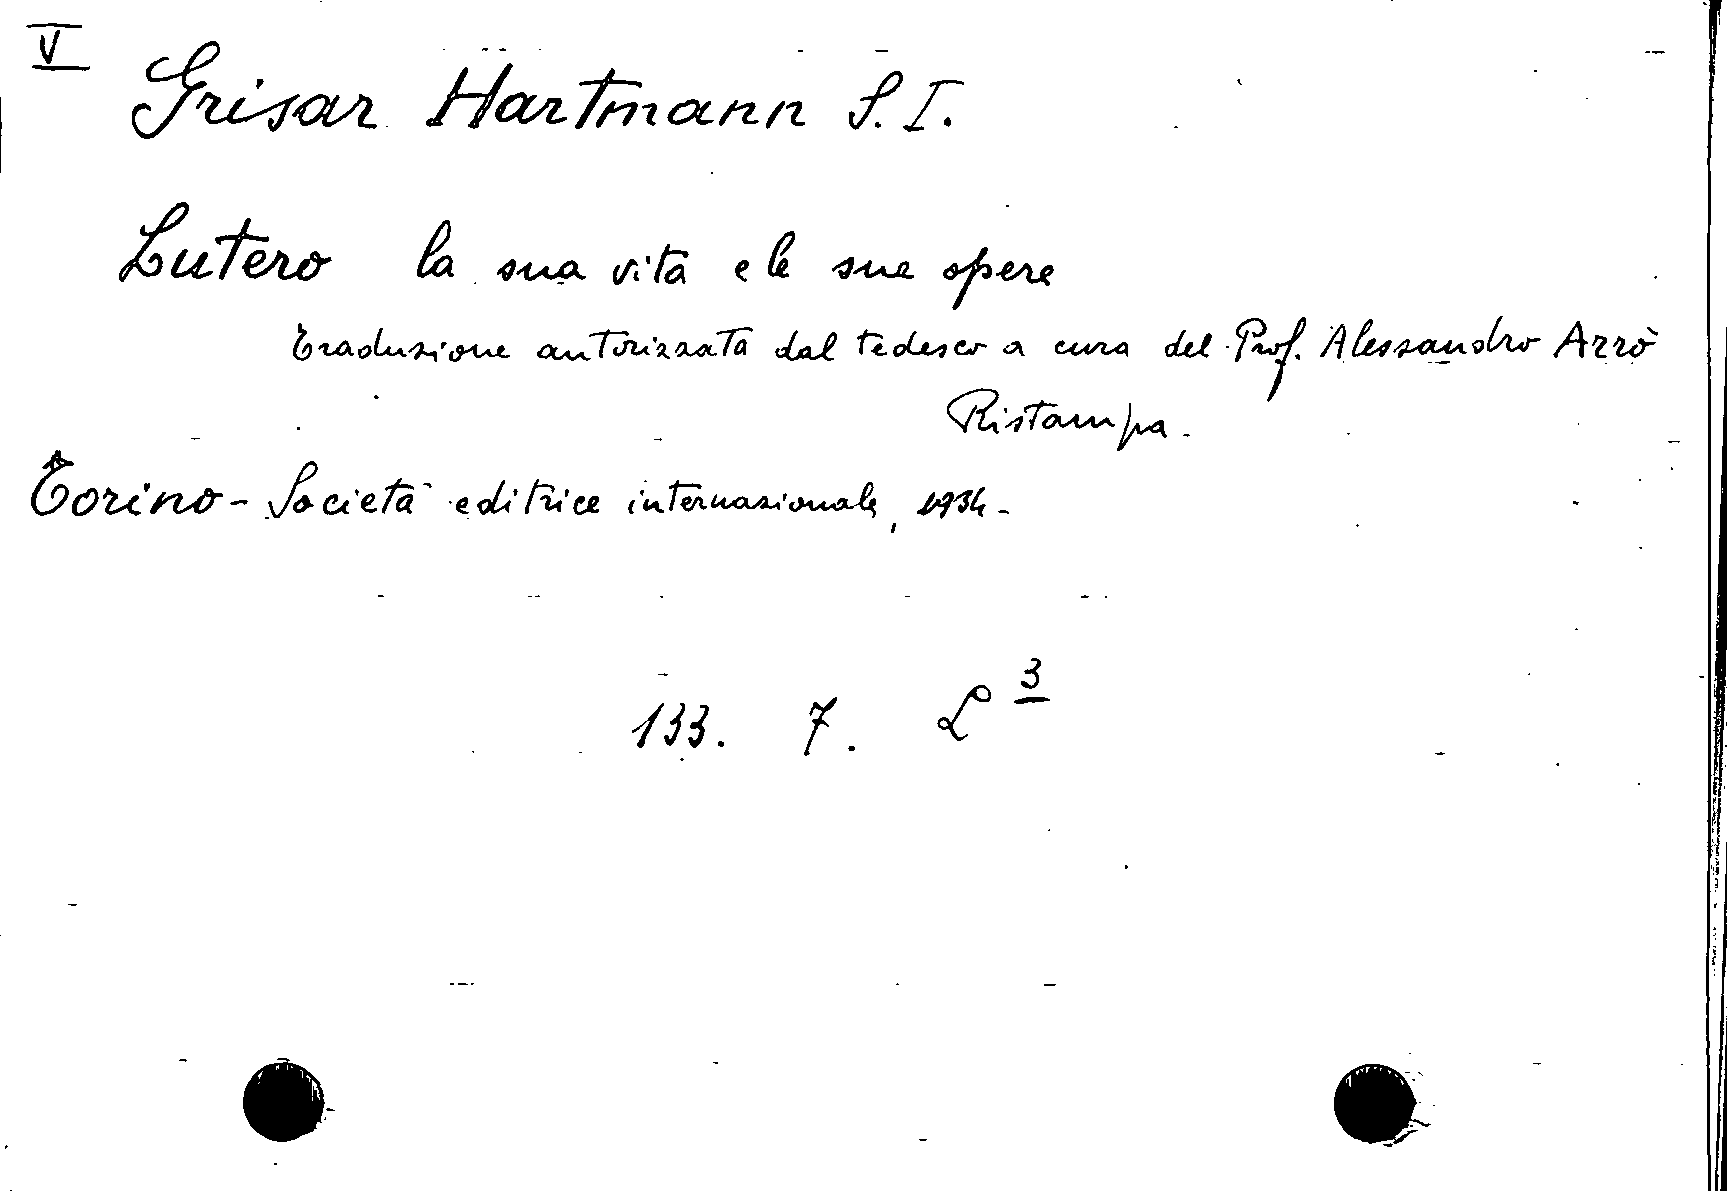 V
Grisar Hartmann S. I.
Lutero la sua vita e le sue opere
Traduzione autorizzata dal tedesco a cura del Prof. Alessandro Arrò
Ristampa.
Torino - Società editrice internazionale, 1934 -
133. 7. L 3